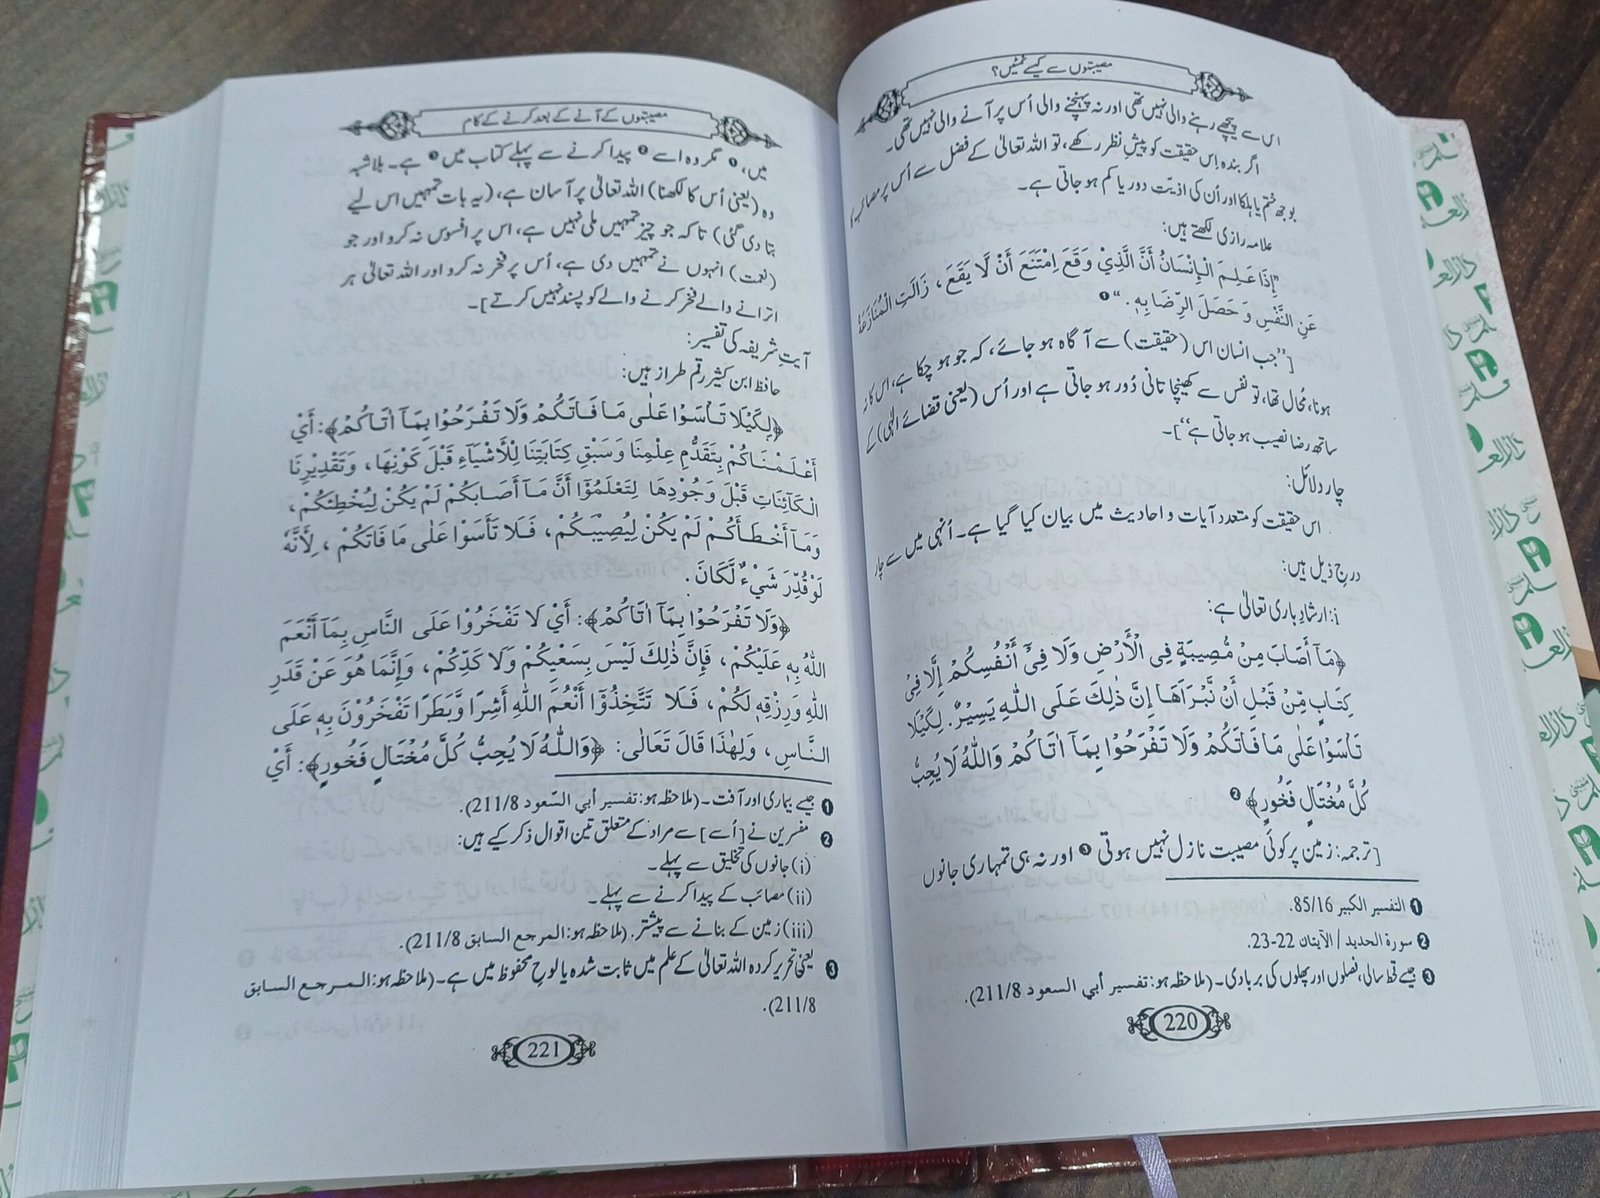 مصیبتوں سے کیسے نمٹیں؟
اس سے پیچھے رہنے والی نہیں تھی اور نہ پہنچنے والی اُس پر آنے والی نہیں تھی۔
اگر بندہ اِس حقیقت کو پیشِ نظر رکھے، تو اللہ تعالیٰ کے فضل سے اُس پر مصائب کا
بوجھ ختم یا ہلکا اور اُن کی اذیّت دور یا کم ہو جاتی ہے۔
علامہ رازی لکھتے ہیں:
”إِذَا عَلِمَ الْإِنْسَانُ أَنَّ الَّذِيْ وَقَعَ اِمْتَنَعَ أَنْ لَّا يَقَعَ، زَالَتِ الْمُنَازَعَةُ
عَنِ النَّفْسِ وَحَصَلَ الرِّضَا بِهِ.“ ❶
[”جب انسان اس (حقیقت) سے آگاہ ہو جائے، کہ جو ہو چکا ہے، اس کا نہ
ہونا، مُحال تھا، تو نفس سے کھینچا تانی دُور ہو جاتی ہے اور اُس (یعنی قضائے الٰہی) کے
ساتھ رضا نصیب ہو جاتی ہے“]۔
چار دلائل:
اس حقیقت کو متعدد آیات و احادیث میں بیان کیا گیا ہے۔ اُنہی میں سے چار
درج ذیل ہیں:
i: ارشادِ باری تعالیٰ ہے:
﴿مَآ أَصَابَ مِنْ مُّصِيبَةٍ فِي الْأَرْضِ وَلَا فِيْٓ أَنْفُسِكُمْ إِلَّا فِيْ
كِتَابٍ مِّنْ قَبْلِ أَنْ نَّبْرَأَهَا إِنَّ ذٰلِكَ عَلَى اللّٰهِ يَسِيْرٌ. لِكَيْلَا
تَأْسَوْا عَلٰى مَا فَاتَكُمْ وَلَا تَفْرَحُوْا بِمَآ اٰتَاكُمْ وَاللّٰهُ لَا يُحِبُّ
كُلَّ مُخْتَالٍ فَخُوْرٍ﴾ ❷
[ترجمہ: زمین پر کوئی مصیبت نازل نہیں ہوتی ❸ اور نہ ہی تمہاری جانوں
❶ التفسير الكبير 85/16.
❷ سورة الحديد / الآيتان 22-23.
❸ جیسے قحط سالی، فصلوں اور پھلوں کی بربادی۔ (ملاحظہ ہو: تفسير أبي السعود 211/8).
220
مصیبتوں کے آنے کے بعد کرنے کے کام
میں، ❶ مگر وہ اسے ❷ پیدا کرنے سے پہلے کتاب میں ❸ ہے۔ بلاشبہ
وہ (یعنی اُس کا لکھنا) اللہ تعالیٰ پر آسان ہے، (یہ بات تمہیں اس لیے
بتا دی گئی) تاکہ جو چیز تمہیں ملی نہیں ہے، اس پر افسوس نہ کرو اور جو
(نعمت) انہوں نے تمہیں دی ہے، اُس پر فخر نہ کرو اور اللہ تعالیٰ ہر
اترانے والے فخر کرنے والے کو پسند نہیں کرتے]۔
آیتِ شریفہ کی تفسیر:
حافظ ابن کثیر رقم طراز ہیں:
﴿لِكَيْلَا تَأْسَوْا عَلٰى مَا فَاتَكُمْ وَلَا تَفْرَحُوْا بِمَآ اٰتَاكُمْ﴾: أَيْ
أَعْلَمْنَاكُمْ بِتَقَدُّمِ عِلْمِنَا وَسَبْقِ كِتَابَتِنَا لِلْأَشْيَآءِ قَبْلَ كَوْنِهَا، وَتَقْدِيْرِنَا
الْكَآئِنَاتِ قَبْلَ وُجُوْدِهَا لِتَعْلَمُوْٓا أَنَّ مَآ أَصَابَكُمْ لَمْ يَكُنْ لِيُخْطِئَكُمْ،
وَمَآ أَخْطَأَكُمْ لَمْ يَكُنْ لِيُصِيْبَكُمْ، فَلَا تَأْسَوْا عَلٰى مَا فَاتَكُمْ، لِأَنَّهُ
لَوْ قُدِّرَ شَيْءٌ لَّكَانَ.
﴿وَلَا تَفْرَحُوْا بِمَآ اٰتَاكُمْ﴾: أَيْ لَا تَفْخَرُوْا عَلَى النَّاسِ بِمَآ أَنْعَمَ
اللّٰهُ بِهِ عَلَيْكُمْ، فَإِنَّ ذٰلِكَ لَيْسَ بِسَعْيِكُمْ وَلَا كَدِّكُمْ، وَإِنَّمَا هُوَ عَنْ قَدَرِ
اللّٰهِ وَرِزْقِهِ لَكُمْ، فَلَا تَتَّخِذُوْٓا أَنْعُمَ اللّٰهِ أَشِرًا وَّبَطَرًا تَفْخَرُوْنَ بِهِ عَلَى
النَّاسِ، وَلِهٰذَا قَالَ تَعَالٰى: ﴿وَاللّٰهُ لَا يُحِبُّ كُلَّ مُخْتَالٍ فَخُوْرٍ﴾: أَيْ
❶ جیسے بیماری اور آفت۔ (ملاحظہ ہو: تفسير أبي السّعود 211/8).
❷ مفسرین نے [اُسے] سے مراد کے متعلق تین اقوال ذکر کیے ہیں:
(i) جانوں کی تخلیق سے پہلے۔
(ii) مصائب کے پیدا کرنے سے پہلے۔
(iii) زمین کے بنانے سے پیشتر. (ملاحظہ ہو: المرجع السابق 211/8).
❸ یعنی تحریر کردہ اللہ تعالیٰ کے علم میں ثابت شدہ یا لوحِ محفوظ میں ہے۔ (ملاحظہ ہو: المرجع السابق
211/8).
221